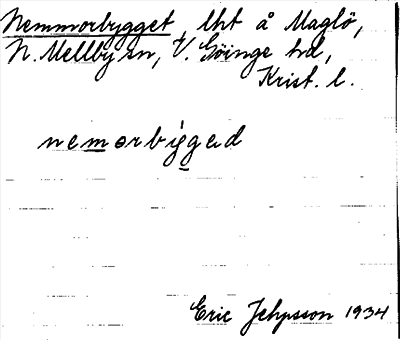 Nemmorbygget, lht å Maglö,
N. Mellby sn, V. Göinge hd,
Krist. l.
nemorbygged
Eric Jehpsson 1934